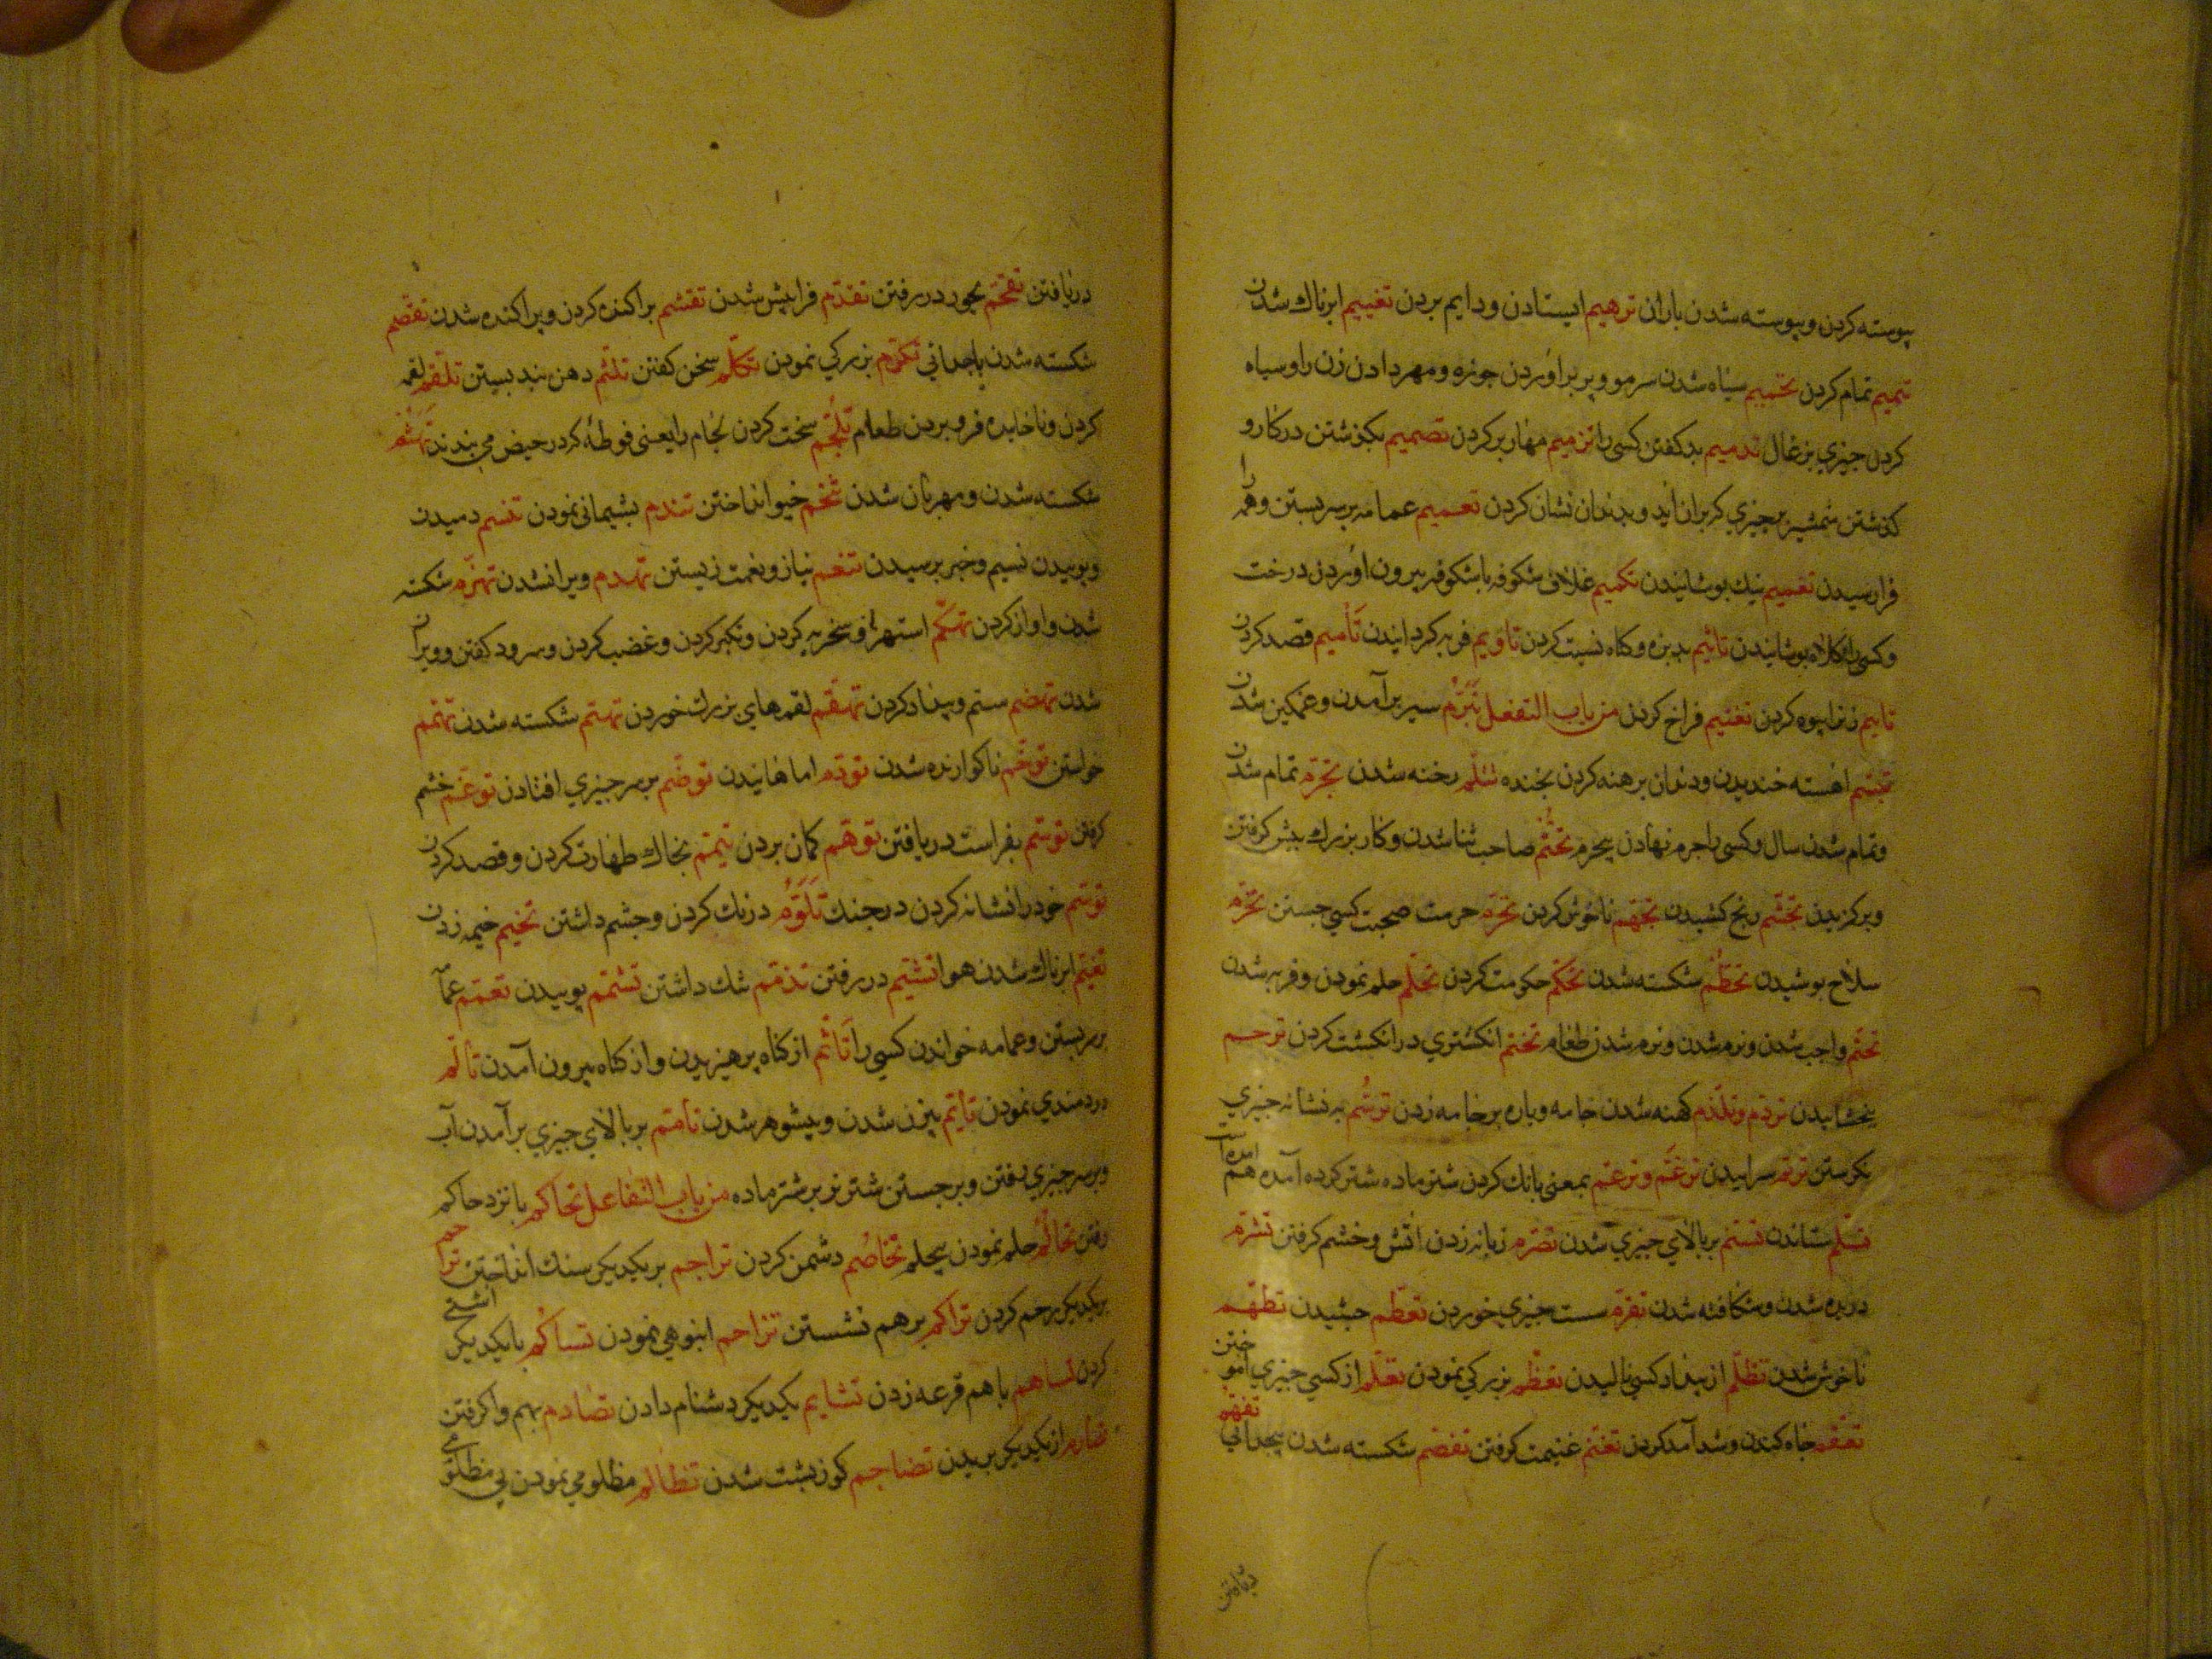 پیوسته کردن و پیوسته شدن باران ترهیم ایستادن و دایم بردن تغییم ابرناك شدن
تمیم تمام کردن تحمیم سیاه شدن سر مو و پر براوردن جوزه و مهر دادن زن را و سیاه
کردن جیزي بزغال تدمیم بد کفتن کسی را تزمیم مهار بر کردن تصمیم بکذشتن در کار و
کذشتن شمشیر بر جیزي که بران اید و بدندان نشان کردن تعمیم عمامه بر سر بستن و همه را
فرا رسیدن تغمیم نیك بوشانیدن تکمیم غلاف شکوفه با شکوفه بیرون اوردن درخت
و کسی را کلاه بوشانیدن تاثیم ببزه و کناه نسبت کردن تاویم فربه کردانیدن تأمیم قصد کردن
تاییم زنرا بیوه کردن تغنیم فراخ کردن من باب التفعل تبرم سیر برآمدن و غمکین شدن
تبسم اهسته خندیدن و دندان برهنه کردن بخنده تثلم رخنه شدن تجرم تمام شدن
و تمام شدن سال و کسی را جرم نهادن بیجرم تختم صاحب ثنا شدن و کار بزرك بیش کرفتن
و برکزیدن تجشم رنج کشیدن تجهم ناخوش کردن تحرم حرمت صحبت کسي جستن تحزم
سلاح بوشیدن تحطم شکسته شدن تحکم حکومت کردن تحلم حلم نمودن و فربه شدن
تحتم واجب شدن و نرم شدن و نرم شدن طعام تختم انکشتري در انکشت کردن ترحم
بخشاییدن تردم و تلدم کهنه شدن جامه و باره بر جامه زدن ترشم به نشانه جیزي
نکرستن ترنم سراییدن ترغم و تزغم بمعنی بانك کردن شتر ماده شتر کرده آمده هم امده است
تسلم ستاندن تسنم بر بالاي جیزي شدن تضرم زبانه زدن اتش و خشم کرفتن تشرم
دریده شدن و شکافته شدن تقرم سست جیزي خوردن تطعم جشیدن تطهم
ناخوش شدن تظلم از بیداد کسی نالیدن تعظم بزرکي نمودن تعلم از کسي جیزي اموختن
تعقم جاه کندن و شد آمد کردن تغنم غنیمت کرفتن تفصم شکسته شدن بیجدائي تفهم
دریافتن
دریافتن تقحم بجور در رفتن تقدم فرابیش شدن تقسم براکنده کردن و پراکنده شدن تقصم
شکسته شدن باجدائي تکرم بزرکي نمودن تکلم سخن کفتن تلثم دهن بند بستن تلقم لقمه
کردن و ناخاییده فرو بردن طعام تلجم سخت کردن لجام را یعنی فوطهٔ که در حیض مي بندند تهشم
شکسته شدن و مهربان شدن تنخم خیو انداختن تندم بشیمانی نمودن تنسم دمیدن
و بوییدن نسیم و خبر برسیدن تنعم بناز و نعمت زیستن تهدم ویرانشدن تهزم شکسته
شدن و اواز کردن تهکم استهزا و سخریه کردن و تکبر کردن و غضب کردن و سرود کفتن و ویران
شدن تهضم ستم و بیداد کردن تهقم لقمه هاي بزرك خوردن تهتم شکسته شدن تهمم
خواستن توخم ناکوارنده شدن تورم اماهانیدن توضم بر سر جیزي افتادن توغم خشم
کرفتن توسم بفراست دریافتن توهم کمان بردن تیمم بخاك طهارت کردن و قصد کردن
توسم خود را نشانه کردن در جنك تلوم درنك کردن و جشم داشتن تخیم خیمه زدن
تغیم ابرناك شدن هوا تشیم در رفتن تذمم شك داشتن تشمم بوییدن تعمم عما
بر سر بستن و عمامه خواندن کسي را تأثم از کناه پرهیزیدن و از کناه بیرون آمدن تألم
دردمندي نمودن تایم بیزن شدن و بیشوهر شدن تامم بر بالاي جیزي برآمدن آب
و بر سر جیزي رفتن و بر جستن شتر نر بر شتر ماده من باب التفاعل تحاکم با نزد حاکم
رفتن تحالم حلم نمودن بیحلم تخاصم دشمنی کردن تراجم بر یکدیکر سنك انداختن تراحم
بر یکدیکر رحم کردن تراکم بر هم نشستن تزاحم انبوهي نمودن تساکم با یکدیکر اشتي
کردن تساهم با هم قرعه زدن تشایم یکدیکر دشنام دادن تصادم بهم وا کرفتن
تصارم از یکدیکر بریدن تضاجم کوزبشت شدن تظالم مظلومي نمودن بي مظلومي